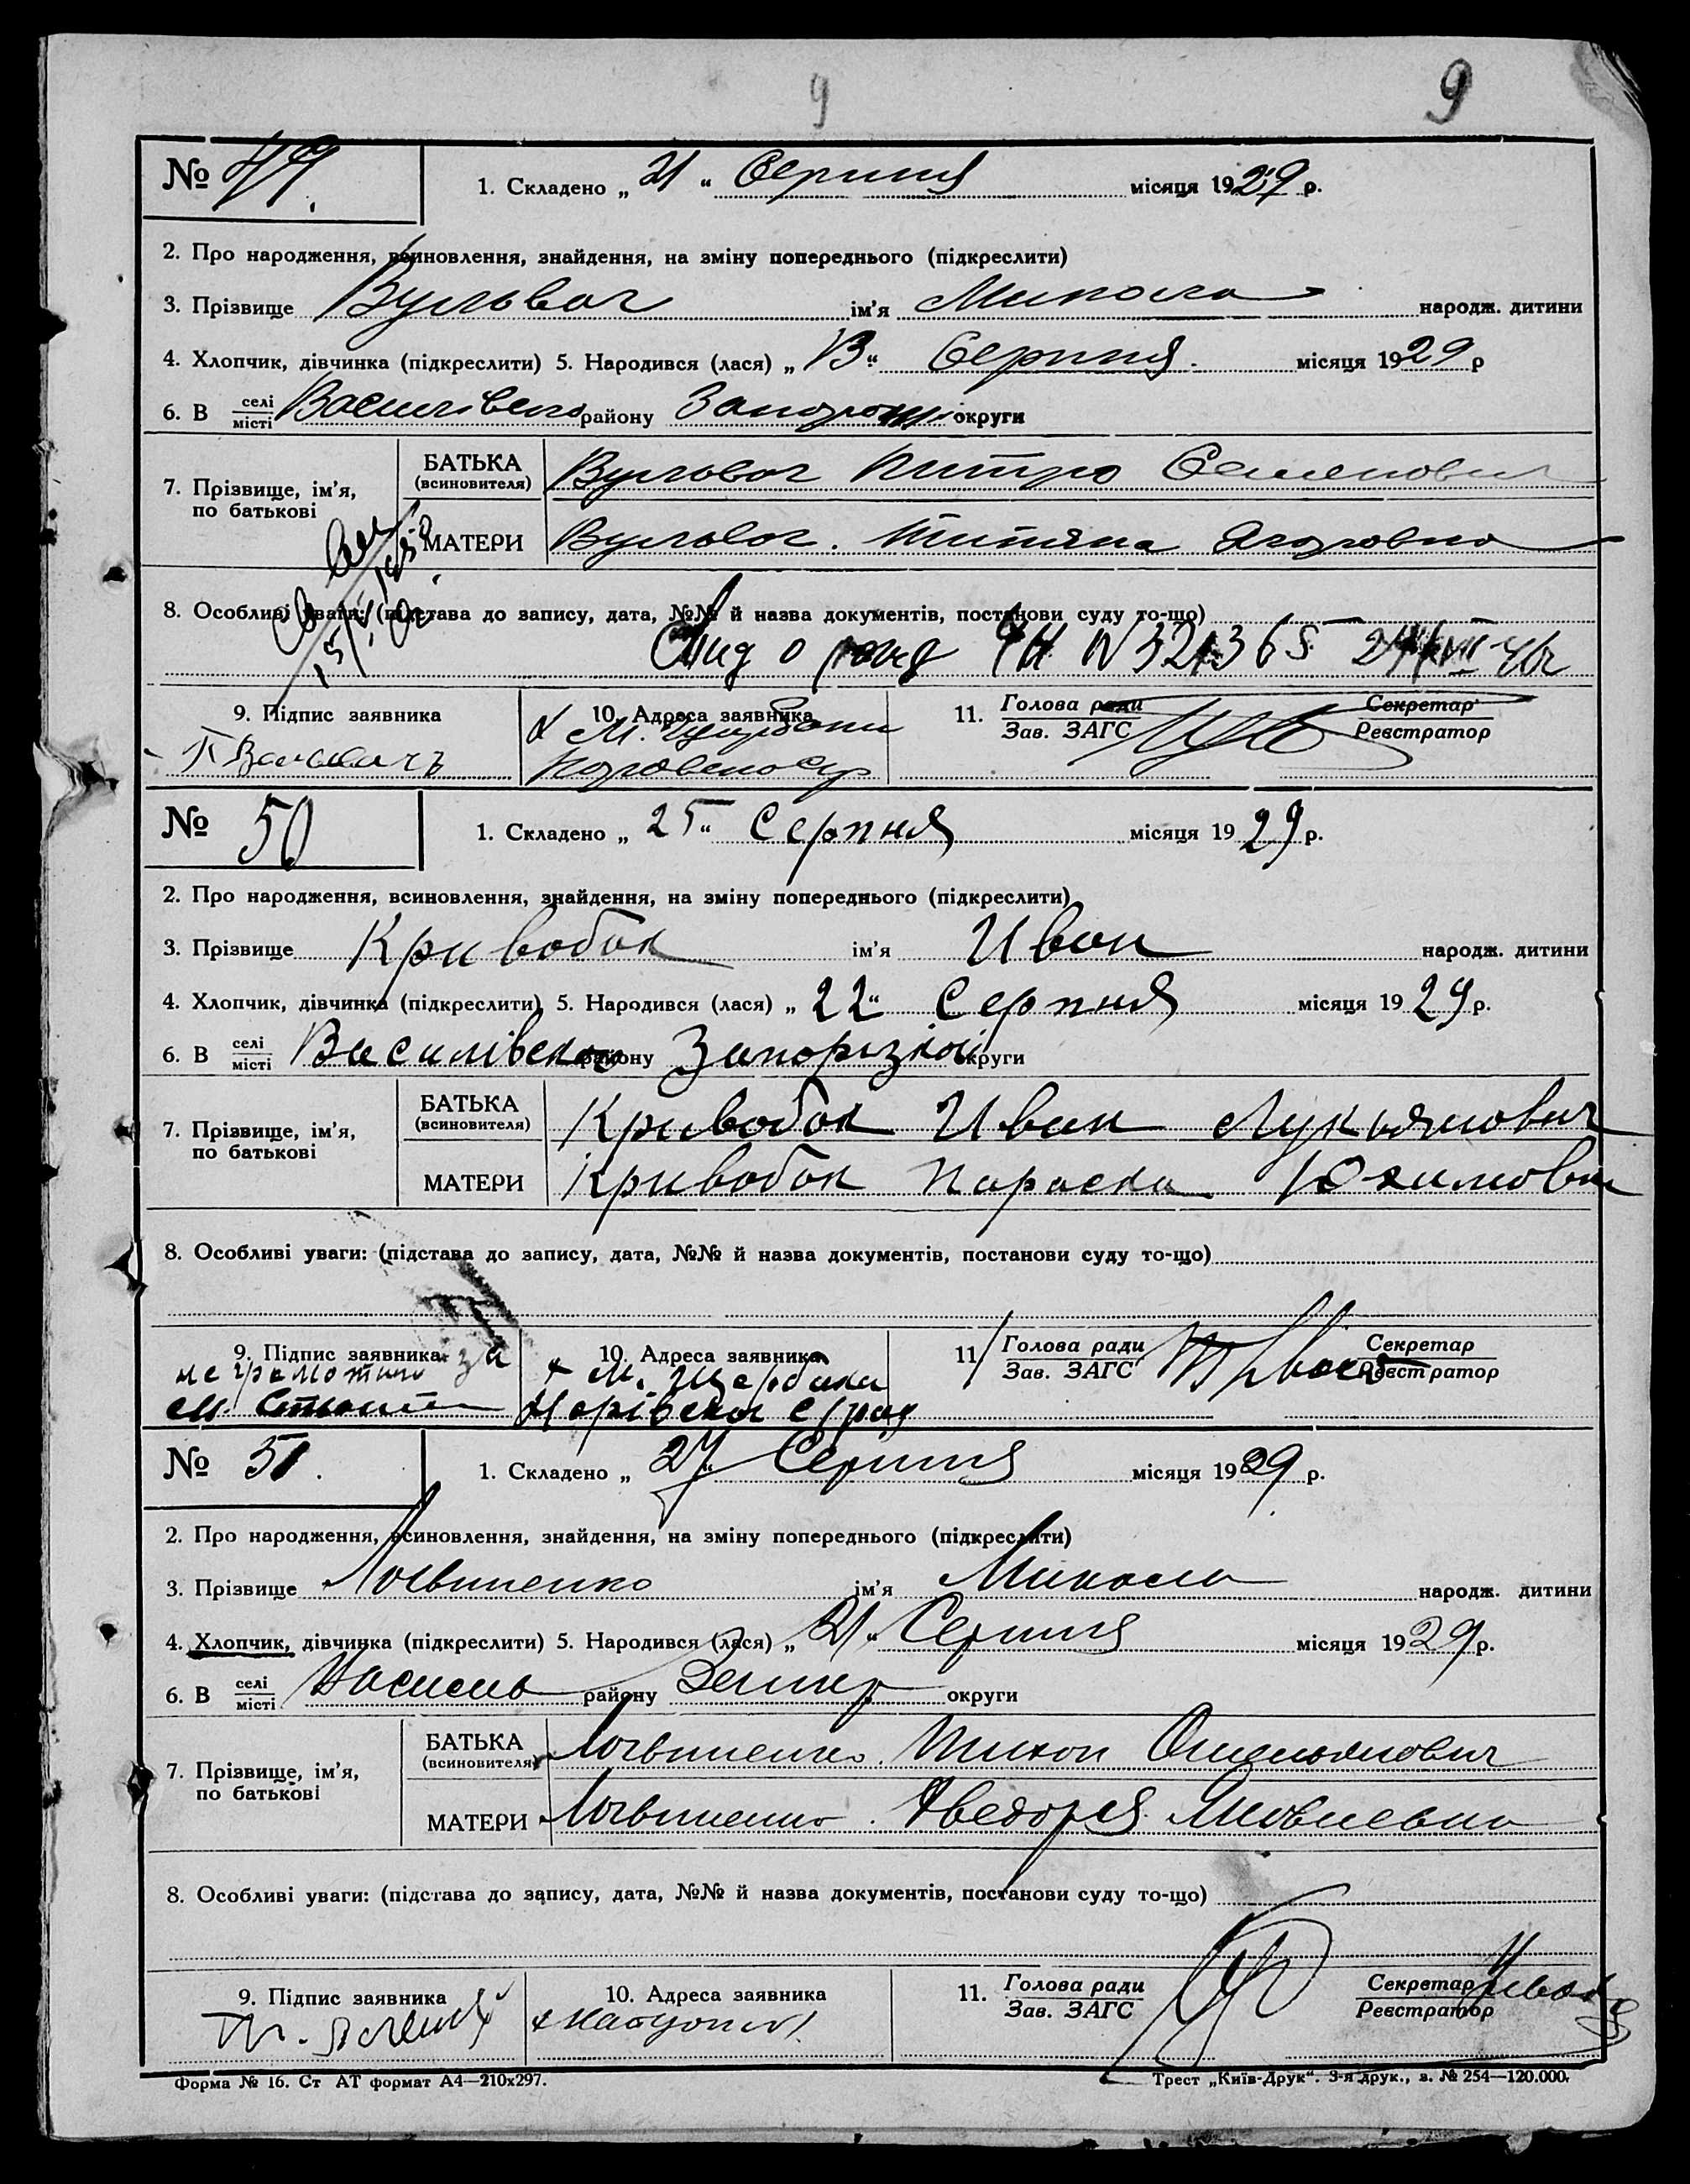 9 9
№ 49. 1. Складено „ 21 “ Серпня місяця 1929 р.
2. Про народження, всиновлення, знайдення, на зміну попереднього (підкреслити)
3. Прізвище Вульвач ім’я Микола народж. дитини
4. Хлопчик, дівчинка (підкреслити) 5. Народився (лася) „ 13 “ Серпня місяця 1929 р
6. В селі місті району округи
7. Прізвище, ім’я, по батькові
БАТЬКА (всиновителя) Вульвач Питро Семенович
МАТЕРИ Вульвач. Титяна
8. Особливі уваги: (підстава до запису, дата, №№ й назва документів, постанови суду то-що)
N 321365
9. Підпис заявника 10. Адреса заявника 11. Голова ради Зав. ЗАГС Секретар Реєстратор
х М. Щербаки
№ 50 1. Складено „ 25 “ Серпня місяця 1929 р.
2. Про народження, всиновлення, знайдення, на зміну попереднього (підкреслити)
3. Прізвище Кривобок ім’я Иван народж. дитини
4. Хлопчик, дівчинка (підкреслити) 5. Народився (лася) „ 22 “ Серпня місяця 1929 р.
6. В селі місті Василівсько району Запорізкої округи
7. Прізвище, ім’я, по батькові
БАТЬКА (всиновителя) Кривобок Иван Лукьянович
МАТЕРИ Кривобок Параска Юхимовна
8. Особливі уваги: (підстава до запису, дата, №№ й назва документів, постанови суду то-що)
9. Підпис заявника за 10. Адреса заявника 11 Голова ради Зав. ЗАГС Секретар Реєстратор
х М. Щербаки
№ 51. 1. Складено „ 27 “ Серпня місяця 1929 р.
2. Про народження, всиновлення, знайдення, на зміну попереднього (підкреслити)
3. Прізвище Логвиненко ім’я Микола народж. дитини
4. Хлопчик, дівчинка (підкреслити) 5. Народився (лася) „ 21 “ Серпня місяця 1929 р.
6. В селі місті району округи
7. Прізвище, ім’я, по батькові
БАТЬКА (всиновителя) Логвиненко. Тихон Омельянович
МАТЕРИ Логвиненко. Яковлевна
8. Особливі уваги: (підстава до запису, дата, №№ й назва документів, постанови суду то-що)
9. Підпис заявника 10. Адреса заявника 11. Голова ради Зав. ЗАГС Секретар Реєстратор
Форма № 16. Ст АТ формат А4—210х297. Трест „Київ-Друк“. 3-я друк., з. № 254—120.000.